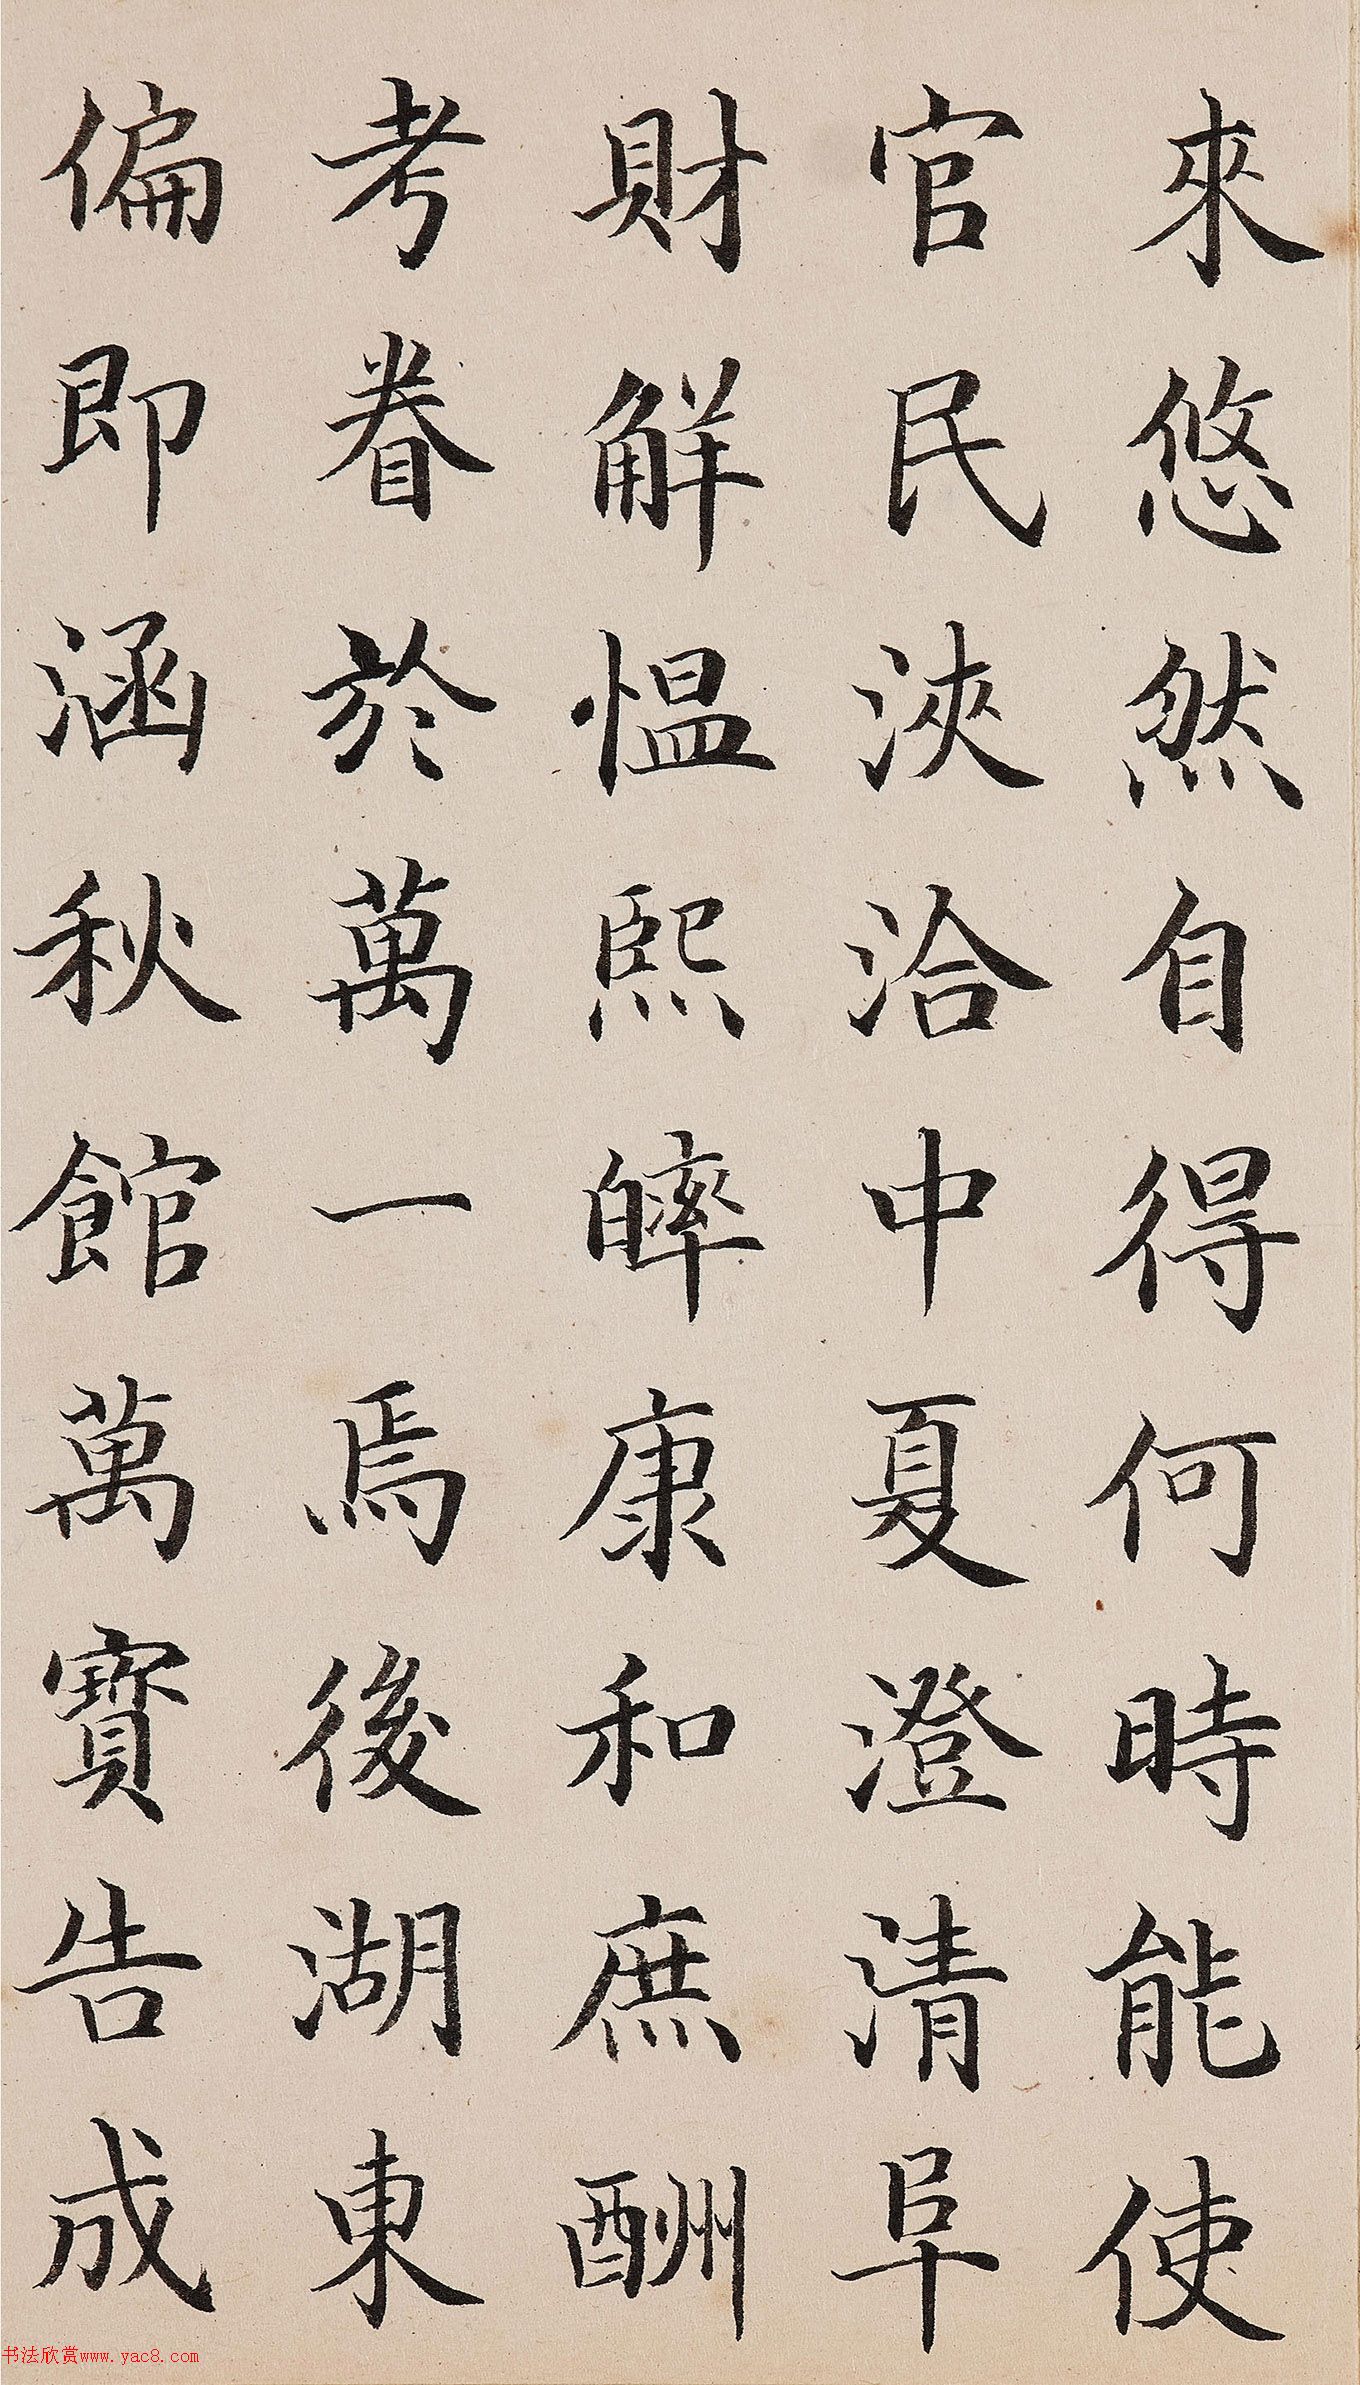 來悠然自得何時能使
官民浹洽中夏澄清阜
財解愠熙皞康和庶酬
考眷於萬一焉後湖東
偏即涵秋館萬寶告成
书法欣赏www.yac8.com